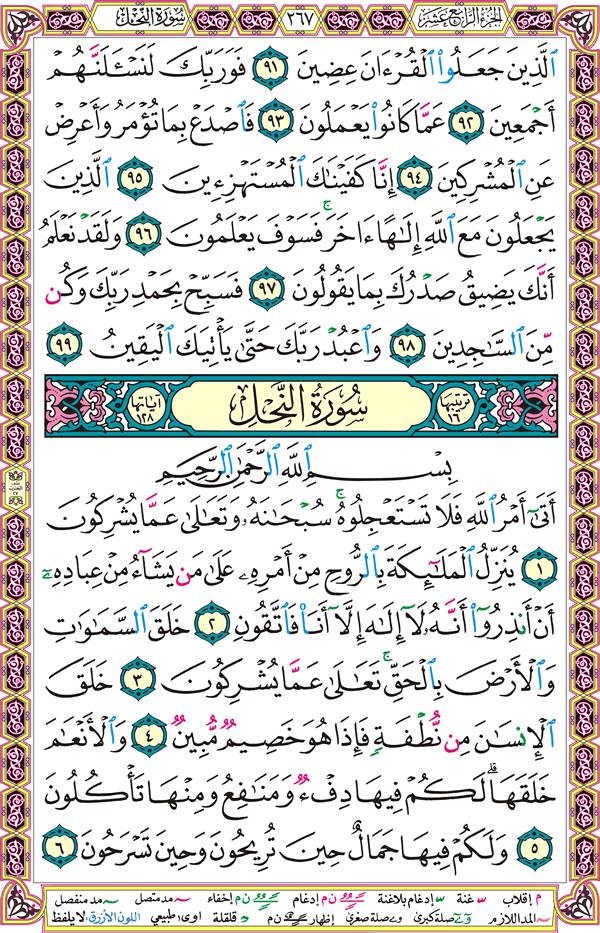 الجزء الرابع عشر ٢٦٧ سورة النحل
ٱلَّذِينَ جَعَلُوا۟ ٱلْقُرْءَانَ عِضِينَ ٩١ فَوَرَبِّكَ لَنَسْـَٔلَنَّهُمْ
أَجْمَعِينَ ٩٢ عَمَّا كَانُوا۟ يَعْمَلُونَ ٩٣ فَٱصْدَعْ بِمَا تُؤْمَرُ وَأَعْرِضْ
عَنِ ٱلْمُشْرِكِينَ ٩٤ إِنَّا كَفَيْنَٰكَ ٱلْمُسْتَهْزِءِينَ ٩٥ ٱلَّذِينَ
يَجْعَلُونَ مَعَ ٱللَّهِ إِلَٰهًا ءَاخَرَ ۚ فَسَوْفَ يَعْلَمُونَ ٩٦ وَلَقَدْ نَعْلَمُ
أَنَّكَ يَضِيقُ صَدْرُكَ بِمَا يَقُولُونَ ٩٧ فَسَبِّحْ بِحَمْدِ رَبِّكَ وَكُن
مِّنَ ٱلسَّٰجِدِينَ ٩٨ وَٱعْبُدْ رَبَّكَ حَتَّىٰ يَأْتِيَكَ ٱلْيَقِينُ ٩٩
ترتيبها ١٦ سُورَةُ النَّحْلِ آياتها ١٢٨
بِسْمِ ٱللَّهِ ٱلرَّحْمَٰنِ ٱلرَّحِيمِ
أَتَىٰٓ أَمْرُ ٱللَّهِ فَلَا تَسْتَعْجِلُوهُ ۚ سُبْحَٰنَهُۥ وَتَعَٰلَىٰ عَمَّا يُشْرِكُونَ
١ يُنَزِّلُ ٱلْمَلَٰٓئِكَةَ بِٱلرُّوحِ مِنْ أَمْرِهِۦ عَلَىٰ مَن يَشَآءُ مِنْ عِبَادِهِۦٓ
أَنْ أَنذِرُوٓا۟ أَنَّهُۥ لَآ إِلَٰهَ إِلَّآ أَنَا۠ فَٱتَّقُونِ ٢ خَلَقَ ٱلسَّمَٰوَٰتِ
وَٱلْأَرْضَ بِٱلْحَقِّ ۚ تَعَٰلَىٰ عَمَّا يُشْرِكُونَ ٣ خَلَقَ
ٱلْإِنسَٰنَ مِن نُّطْفَةٍ فَإِذَا هُوَ خَصِيمٌ مُّبِينٌ ٤ وَٱلْأَنْعَٰمَ
خَلَقَهَا ۗ لَكُمْ فِيهَا دِفْءٌ وَمَنَٰفِعُ وَمِنْهَا تَأْكُلُونَ
٥ وَلَكُمْ فِيهَا جَمَالٌ حِينَ تُرِيحُونَ وَحِينَ تَسْرَحُونَ ٦
م إقلاب غنة إدغام بلاغنة ن م إدغام ن م إخفاء مد متصل مد منفصل
المد اللازم صلة كبرى صلة صغرى إظهار ن م قلقلة اوى طبيعي اللون الأزرق لا يلفظ